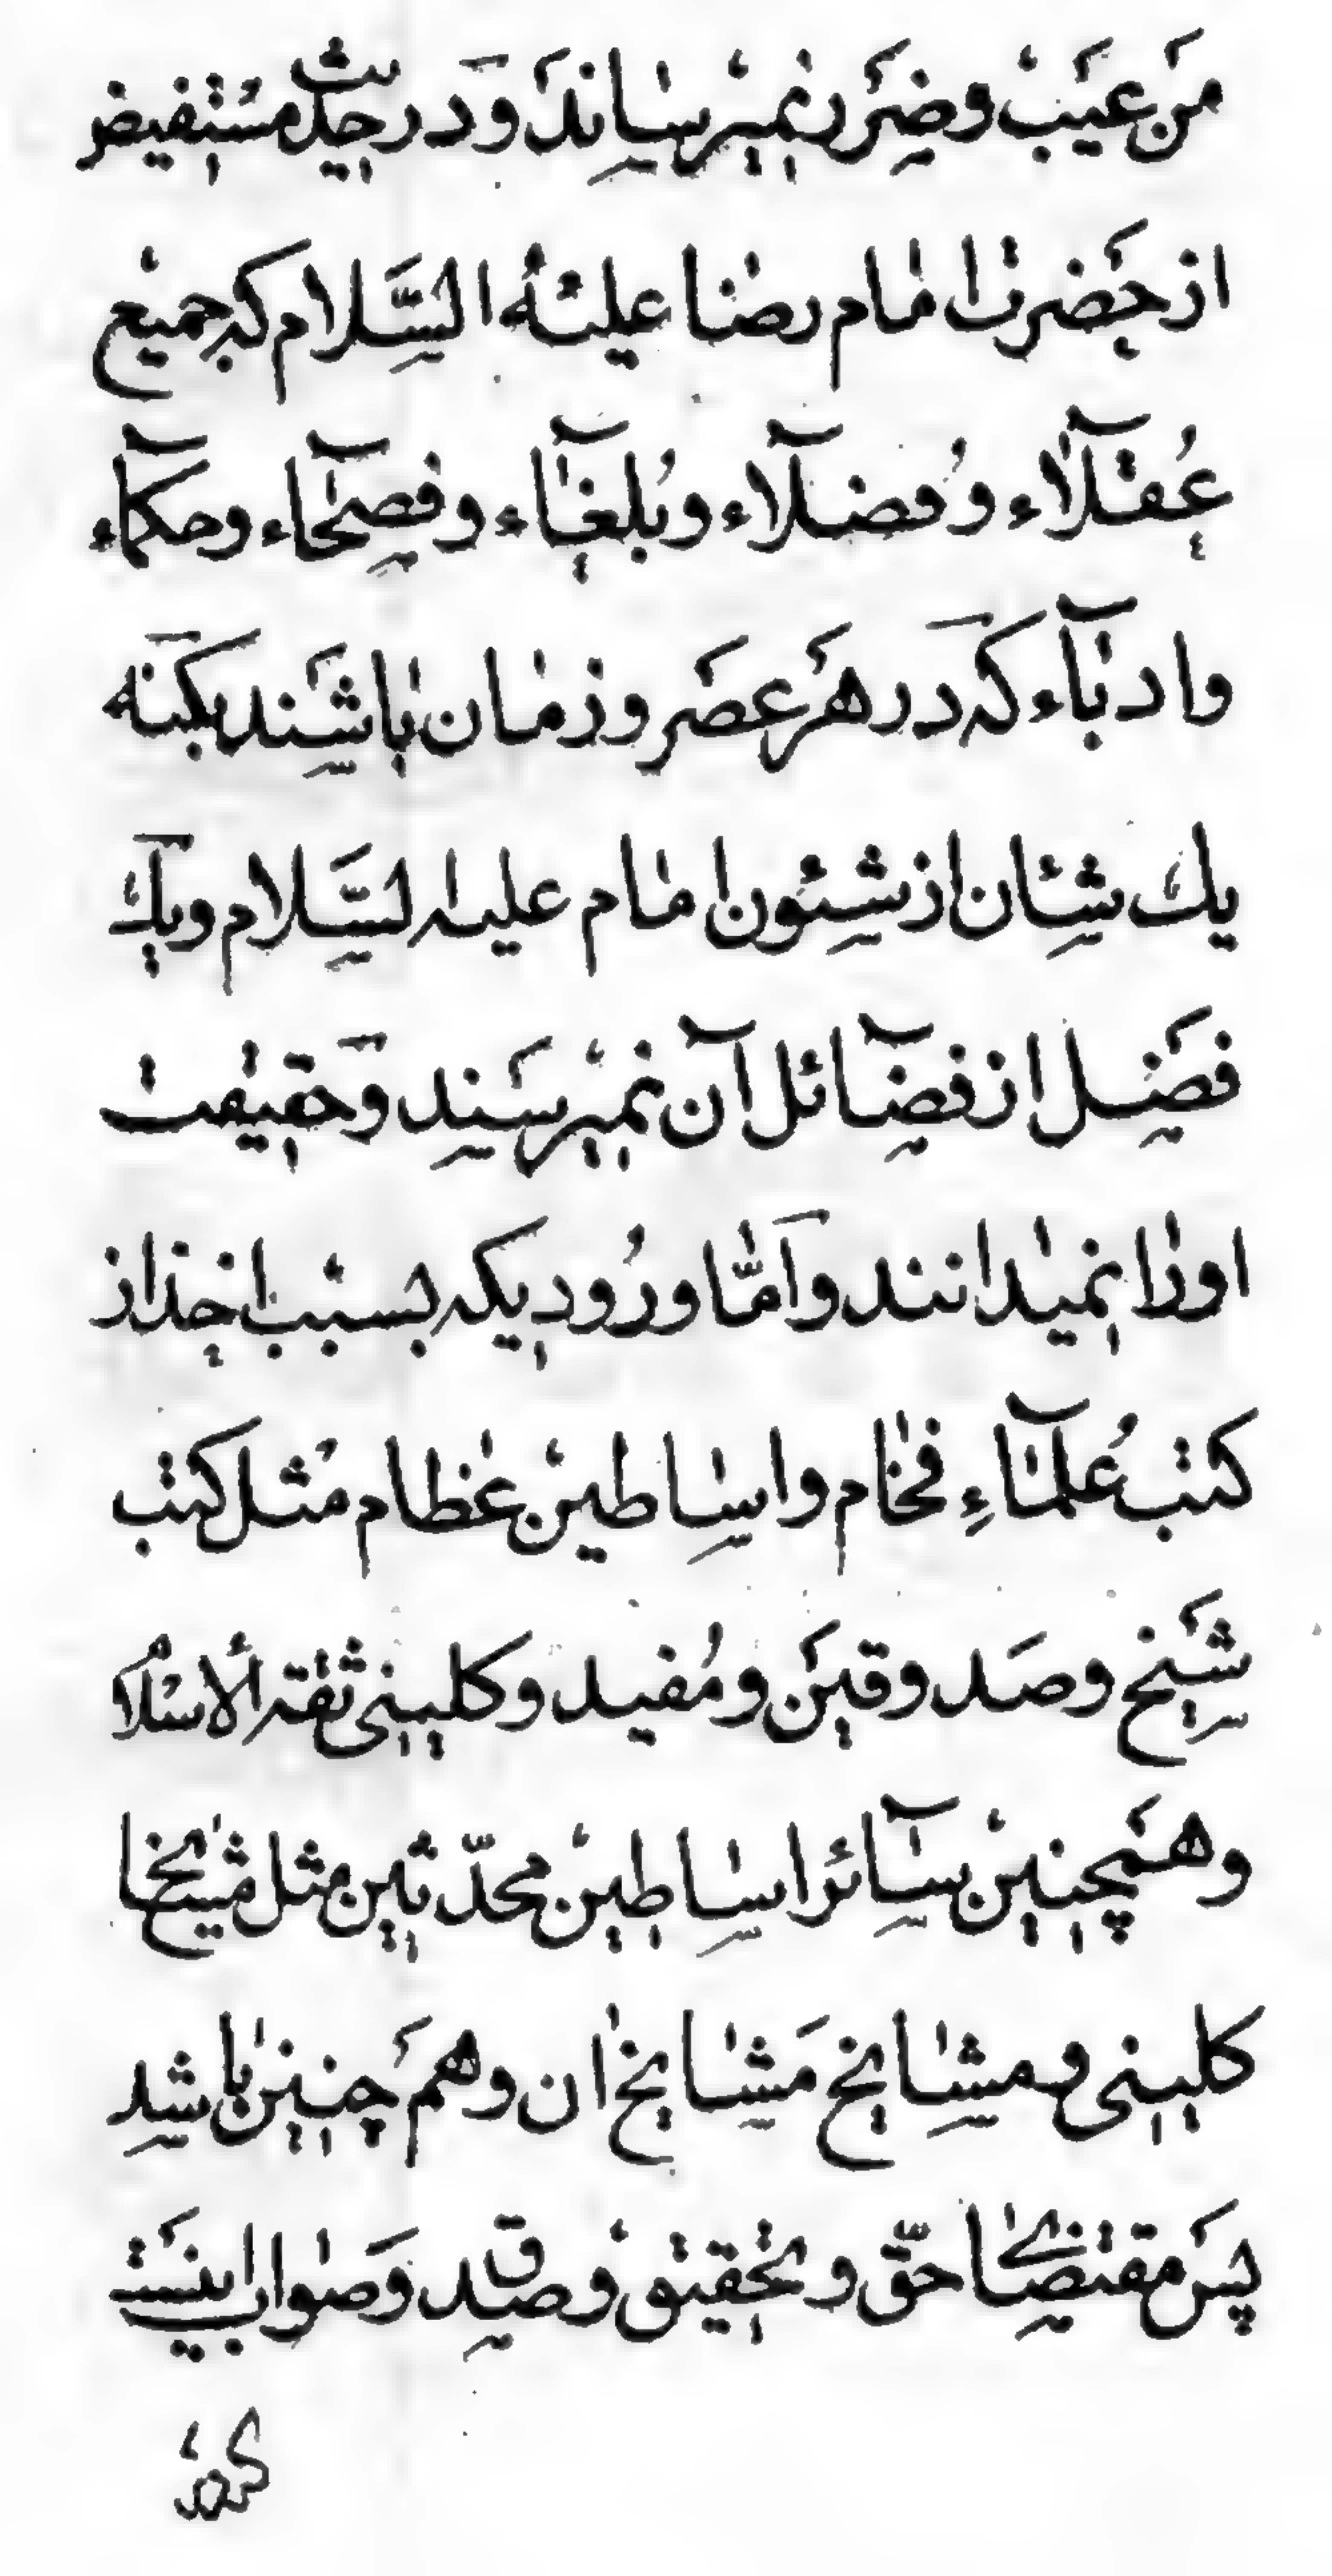 من عَیَبْ و ضَرَر نمیرسَانَد وَ دَر حدیث مُسْتفیض
از حَضرت امام رضا علیْه السَّلام که جمیع
عُقلآء و فُضلآء و بُلغآء و فصحآء و حکمآء
و ادبآء که دَر هَر عَصَر و زمان باشَند بکَنه
یك شئان از شئون امام علیه السَّلام و یك
فضَل از فضآئل آن نمیرسَند وَ حقیقت
او را نمیدانند و اَمّا ورُودیکه بسبب اخذ از
کتب عُلمآءِ فخام و اساطین عظام مثل کتب
شَیخ و صَدوقیَن و مُفید و کلینی ثقة الاسْلام
و همَچنین سآئر اساطین محدّثین مثل مشایخ
کلینی و مشایخ مَشایخ ان و همَ چنین باشد
پسَ مقتضای حقّ و تحقیق و صدق وَ صواب اینست